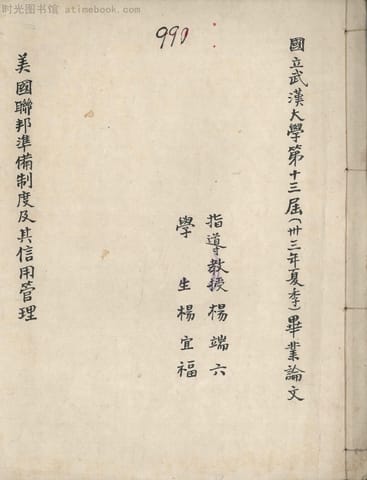 时光图书馆 atimebook.com
990
國立武漢大學第十三屆(卅三年夏季)畢業論文
指導教授 楊端六
學生 楊宜福
美國聯邦準備制度及其信用管理